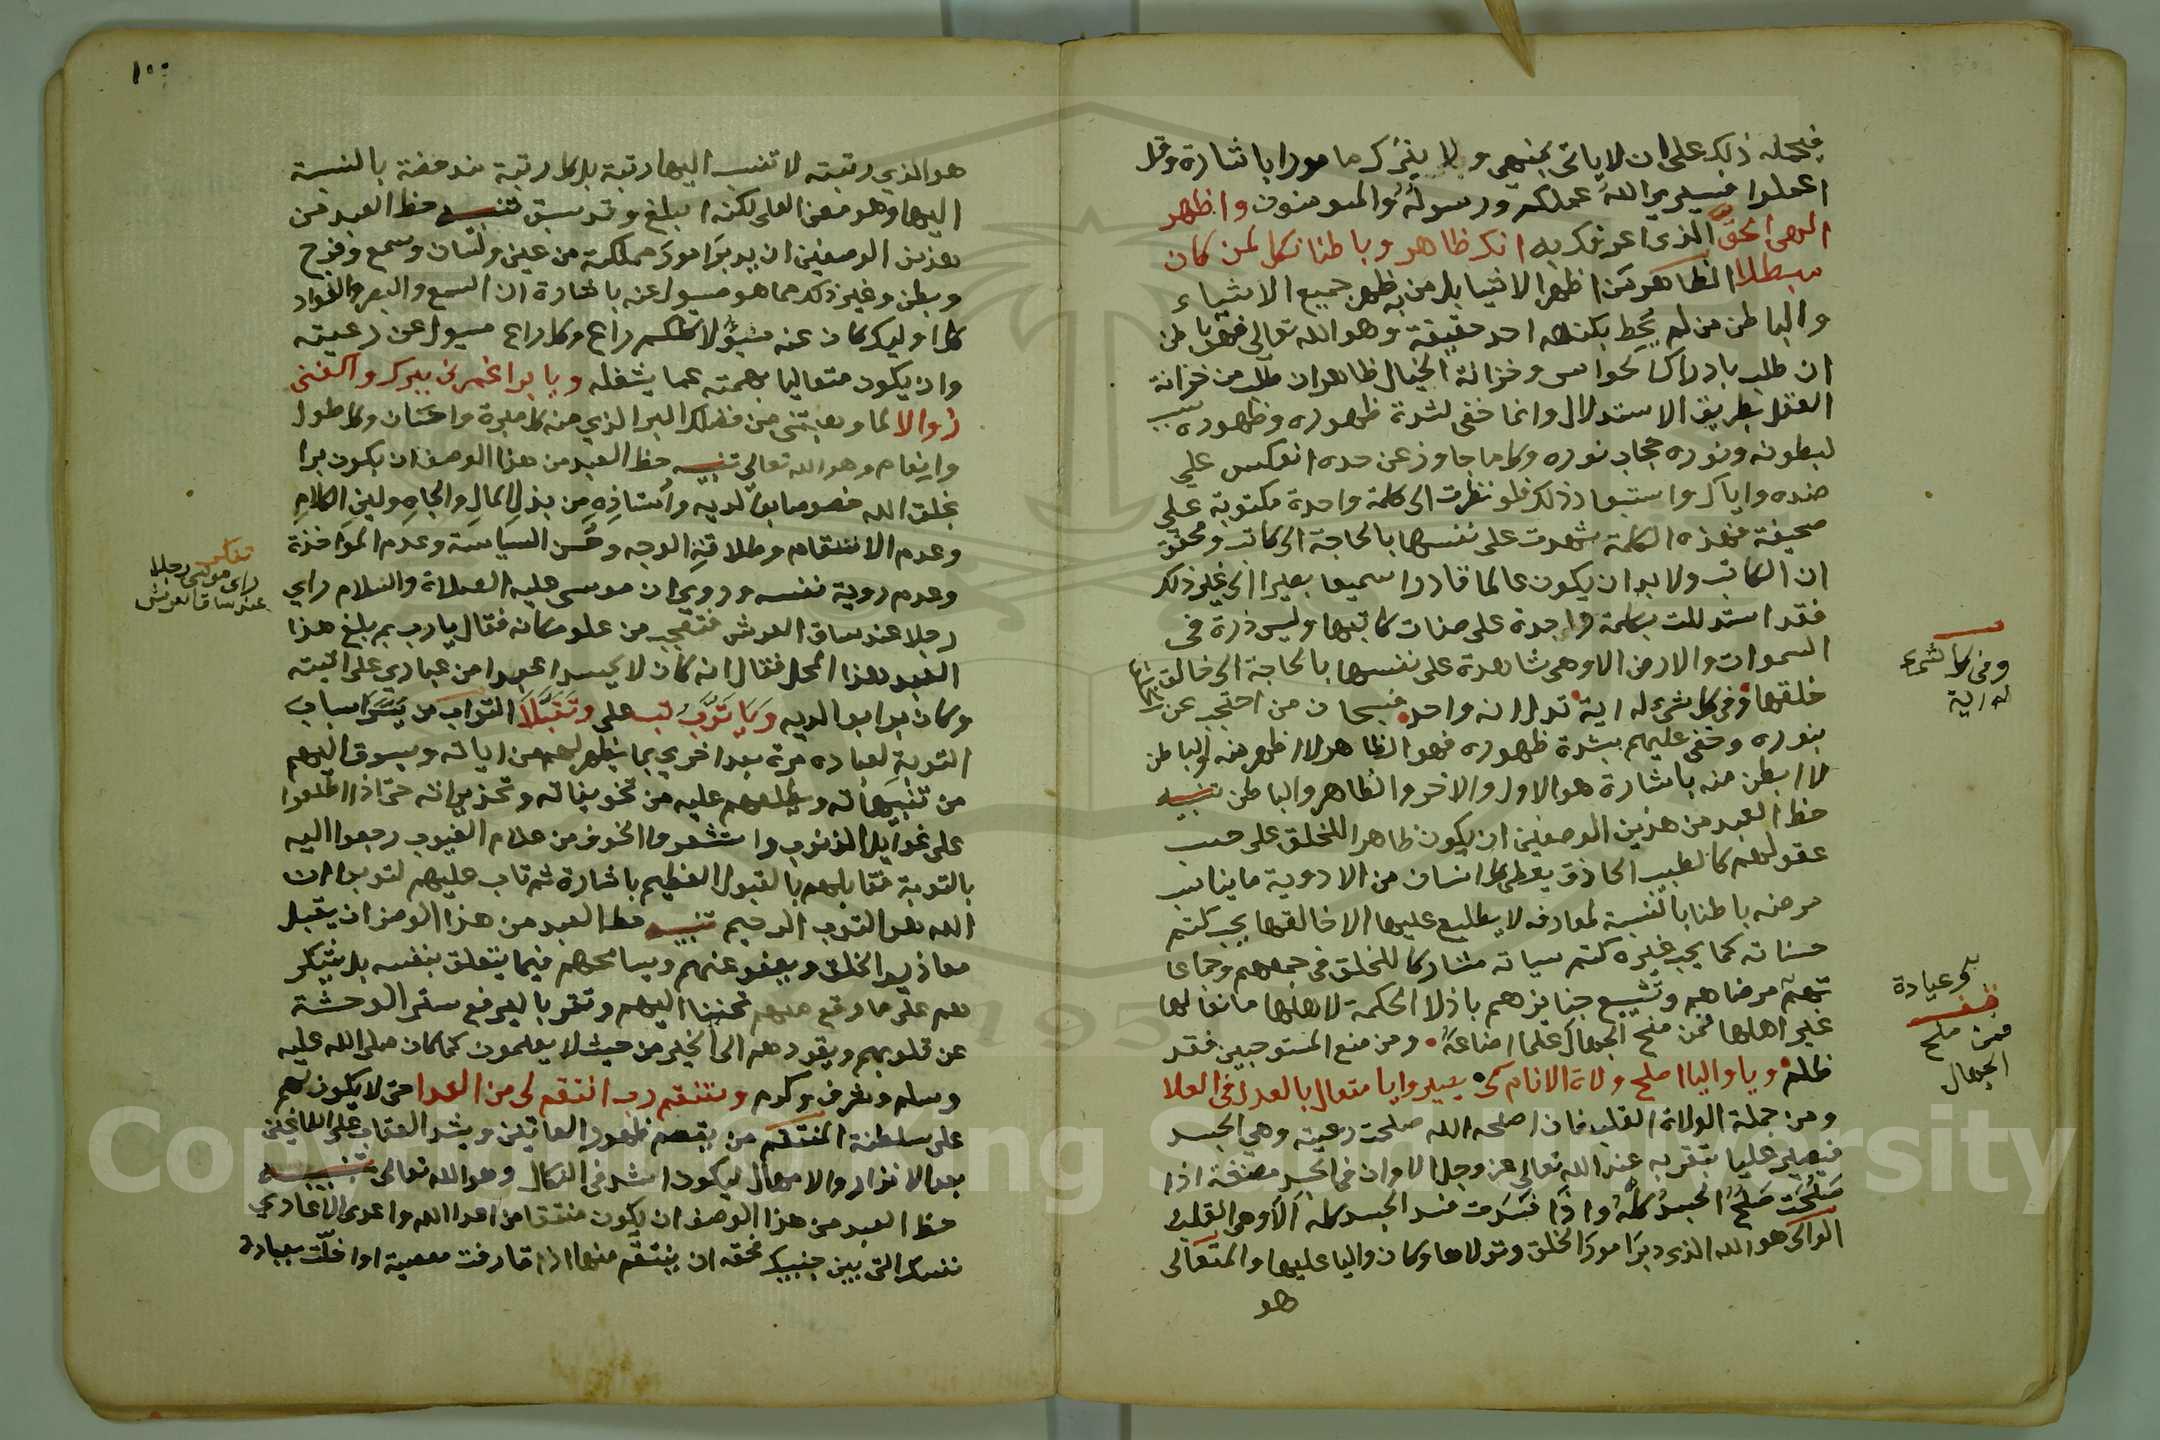 فيحمله ذلك على ان لا ياتى بمنهي ولا يترك مامورا باشارة وقل
اعملوا فسيرى الله عملكم ورسوله والمومنون واظهر
الهى الحق الذى اعرفك به انك ظاهر وباطنا نكل لمن كان
مبطلا الظاهر من اظهر الاشيا بل من به ظهر جميع الاشياء
والباطن من لم يحط بكنهه احد حقيقة وهو الله تعالى فهو باطن
ان طلب بادراك الحواس وخزانة الخيال ظاهر ان طلب من خزانة
العقل بطريق الاستدلال وانما خفى لشدة ظهوره وظهوره سبب
لبطونه ونوره حجاب نوره وكل ما جاوز عن حده انعكس علي
ضده واياك واستبعاد ذلك فلو نظرت الى كلمة واحدة مكتوبة على
صحيفة فهذه الكلمة شهدت على نفسها بالحاجة الى كاتب ومحقق
ان الكاتب ولا بد ان يكون عالما قادرا سميعا بصيرا الى غير ذلك
فقد استدللت بكلمة واحدة على صفات كاتبها وليس ذرة فى
السموات والارض الا وهى شاهدة على نفسها بالحاجة الى خالق
خلقها وفى كل شئ له اية تدل انه واحد فسبحان من احتجب عن
بنوره وخفى عليهم بشدة ظهوره فهو الظاهر لا اظهر منه والباطن
لا ابطن منه باشارة هو الاول والاخر والظاهر والباطن تنبيه
حظ العبد من هذين الوصفين ان يكون ظاهرا للخلق على حسب
عقولهم كالطبيب الحاذق يعطى كل انسان من الادوية ما يناسب
مرضه باطنا بالنسبة لمعارفه لا يطلع عليها الا خالقها يحب كتم
حسناته كما يحب غيره كتم سياته مشاركا للخلق فى جمعهم وجماعا
تهم مرضاهم وتشييع جنايزهم باذلا الحكمة لاهلها مانعا لها
غير اهلها فمن منح الجهال علما اضاعه ومن منع المستوجبين فقد
ظلم ويا واليا اصلح ولاة الانام كى يسيروا يا متعال بالعدل فى العلا
ومن جملة الولاة القلب فان اصلحه الله صلحت رعيته وهي الجسد
فيصير عليا بتقربه عند الله تعالى عز وجل الا وان فى الجسد مضغة اذا
صلحت صلح الجسد كله واذا فسدت فسد الجسد كله الا وهى القلب
الوالى هو الله الذى دبر امور الخلق وتولاها وكان واليا عليها والمتعالى
هو
وفى كل شئ
له اية
وعيادة
فمن منح
الجهال
١٠٠
هو الذي رتبته لا تنسب اليها رتبة بل كل رتبة منخفضة بالنسبة
اليها وهو معنى العلى لكنه ابلغ وقد سبق تنبيه حظ العبد من
هذين الوصفين ان يدبر امور مملكته من عين ولسان وسمع وفرج
وبطن وغير ذلك مما هو مسيول عنه باشارة ان السمع والبصر والفواد
كل اوليك كان عنه مسؤلا كلكم راع وكل راع مسيول عن رعيته
وان يكون متعاليا بهمته عما يشغله ويا بر اغمرنى ببرك واكفنى
زوالا لما وهبتنى من فضلك البر الذي منه كل مبرة واحسان وكل طول
وانعام وهو الله تعالى تنبيه حظ العبد من هذا الوصف ان يكون برا
بخلق الله خصوصا بوالديه وأستاذه من بذل المال والجاه ولين الكلام
وعدم الانتقام وطلاقة الوجه وحسن السياسة وعدم المواخذة
وعدم روية نفسه وروي ان موسى عليه الصلاة والسلام راي
رجلا عند ساق العرش فتعجب من علو مكانه فقال يارب بم بلغ هذا
العبد هذا المحل فقال انه كان لا يحسد احدا من عبادي على اتيته
وكان برا بوالديه ويا توب تب على وتقبلا التواب من ييسر اسباب
التوبة لعباده مرة بعد اخري بما يظهر لهم من اياته ويسوق اليهم
من تنبيهاته ويطلعهم عليه من تخويفاته وتحذيراته حتى اذا اطلعوا
على غوايل الذنوب واستشعروا الخوف من علام الغيوب رجعوا اليه
بالتوبة فقابلهم بالقبول العظيم باشارة ثم تاب عليهم ليتوبوا ان
الله هو التواب الرحيم تنبيه حظ العبد من هذا الوصف ان يقبل
معاذير الخلق ويعفو عنهم ويسامحهم فيما يتعلق بنفسه بل يشكر
لهم على ما وقع منهم تحننا اليهم وتقربا ليرفع ستر الوحشة
عن قلوبهم ويقودهم الى الخير من حيث لا يعلمون كما كان صلى الله عليه
وسلم وشرف وكرم ومنتقم رب انتقم لى من العدا حتى لا يكون لهم
على سلطنة المنتقم من يقصم ظهور العاتين ويشد العقاب على الطاغين
بعد الانذار والامهال ليكون اشد فى النكال وهو الله تعالى تنبيه
حظ العبد من هذا الوصف ان يكون منتقما من اعدا الله واعدى الاعادي
نفسك التى بين جنبيك فحقه ان ينتقم منها اذا قارفت معصية او اخلت بعبادة
راى موسى رجلا
عند ساق العرش
Copyright © King Saud University
1957